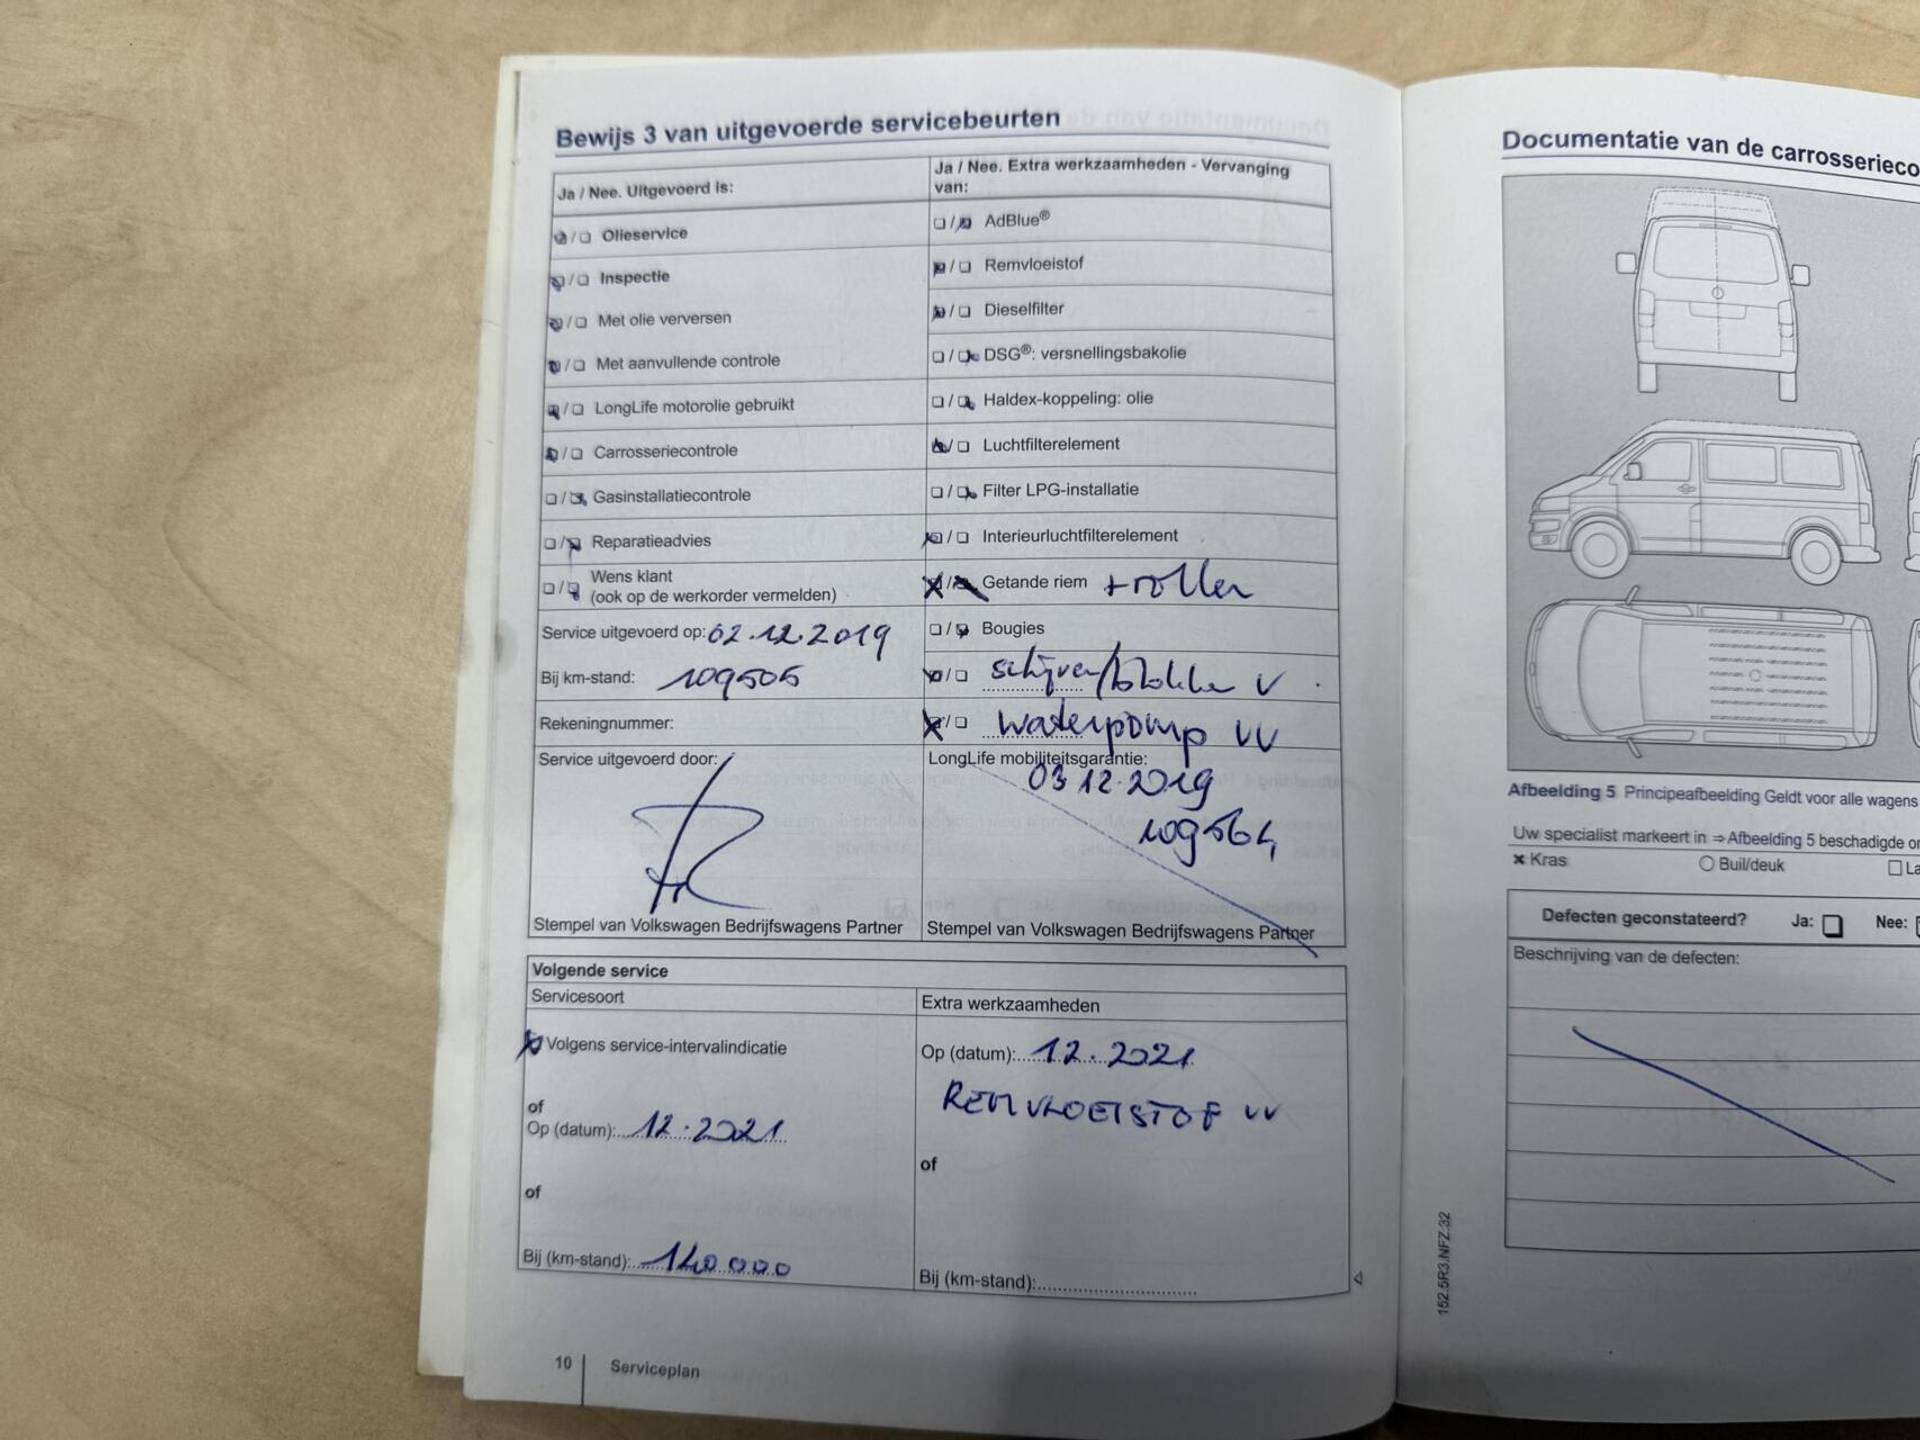 Bewijs 3 van uitgevoerde servicebeurten
Ja / Nee. Uitgevoerd is:
Olieservice
Inspectie
Met olie verversen
Met aanvullende controle
LongLife motorolie gebruikt
Carrosseriecontrole
Gasinstallatiecontrole
Reparatieadvies
Wens klant
(ook op de werkorder vermelden)
Service uitgevoerd op: 02.12.2019
Bij km-stand: 109505
Rekeningnummer:
Service uitgevoerd door:
Stempel van Volkswagen Bedrijfswagens Partner
Ja / Nee. Extra werkzaamheden - Vervanging
van:
AdBlue®
Remvloeistof
Dieselfilter
DSG®: versnellingsbakolie
Haldex-koppeling: olie
Luchtfilterelement
Filter LPG-installatie
Interieurluchtfilterelement
Getande riem + rollen
Bougies
schijven/blokken V
waterpomp VV
LongLife mobiliteitsgarantie:
03.12.2019
109564
Stempel van Volkswagen Bedrijfswagens Partner
Volgende service
Servicesoort
Volgens service-intervalindicatie
of
Op (datum): 12.2021
of
Bij (km-stand): 140.000
Extra werkzaamheden
Op (datum): 12.2021
REMVLOEISTOF VV
of
Bij (km-stand):
10 Serviceplan
Documentatie van de
Afbeelding 5 Principeafbeelding Geldt voor alle wagens
Uw specialist markeert in ⇒ Afbeelding 5 beschadigde
Kras Buil/deuk
Defecten geconstateerd? Ja: Nee:
Beschrijving van de defecten:
152.5R3.NFZ.32